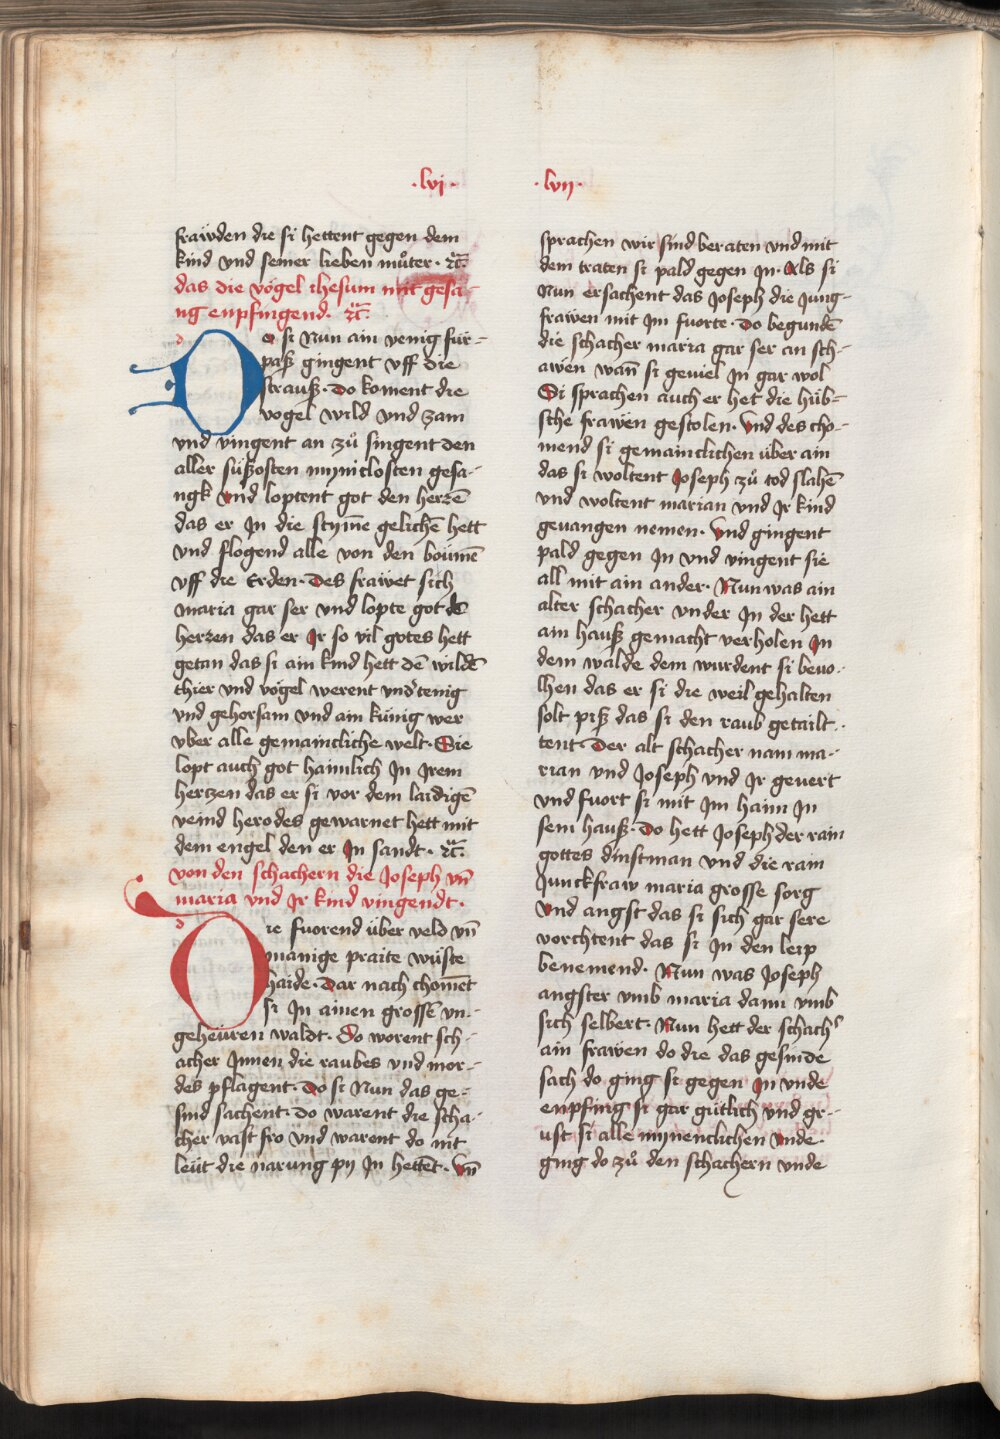 ·lvi·
fraẅden die si hettent gegen dem
kind vnd seiner lieben můter· ꝛc̄
das die vögel ihesum mit gesa-
ng enpfingend· ꝛc̄
Do si Nun ain wenig für-
paß gingent vff die
strauß· Do koment die
vogel wild vnd zam
vnd vingent an zů singent den
aller süßosten myniclosten gesa-
ngk vnd loptent got den herzē
das er Jn die stym̄e gelichē hett
vnd flogend alle von den boümē
vff die Erden· Des fraẅet sich
maria gar ser vnd lopte got dē
herzen das er Jr so vil gůtes hett
getan das si ain kind hett dē wildē
thier vnd vögel werent vnd'tenig
vnd gehorsam vnd ain künig wer
vber alle gemaincliche welt· Sie
lopt auch got haimlich Jn Jrem
hertzen das er si vor dem laidigē
veind herodes gewarnet hett mit
dem engel den er Jn sandt· ꝛc̄
von den schachern die Joseph vn̄
maria vnd Jr kind vingendt·
Die fuorend über veld vn̄
manige praite wüste
haide· Dar nach chom̄et
si Jn ainen grossē vn-
geheüren waldt· Do worent sch-
acher Jnnen die raubes vnd mor-
des pflagent· Do si Nun das ge-
sind sachent· do warent die scha-
cher vast fro vnd warent do nit
leüt die narung py Jn hettēt· vn̄
·lvij·
sprachen wir sind beraten vnd mit
dem traten si pald gegen Jn· Als si
Nun ersachent das Joseph die Jung-
frawen mit Jm fuorte· Do begundē
die schacher maria gar ser an sch-
awen wan̄ si geuiel Jn gar wol
Si sprachen auch er het die hüb-
sche fraẅen gestolen· vnd des cho-
mend si gemainclichen über ain
das si woltent Joseph zů tod slahē
vnd woltent marian vnd Jr kind
geuangen nemen· vnd gingent
pald gegen Jn vnd vingent sie
all mit ain ander· Nun was ain
alter schacher vnder Jn der hett
ain hauß gemacht verholen Jn
dem walde dem wurdent si beuo-
lhen das er si die weil gehalten
solt piß das si den raub getailt-
tent· Der alt schacher nam ma-
rian vnd Joseph vnd Jr geuert
vnd fuort si mit Jm haim Jn
sein hauß· Do hett Joseph der rain
gottes dinstman vnd die rain
Junckfraw maria grosse sorg
vnd angst das si sich gar sere
vorchtent das si Jn den leip
benemend· Nun was Joseph
angster vmb maria dann vmb
sich selbert· Nun hett der schach'
ain frawen do die das gesinde
sach do ging si gegen Jn vnde
enpfing si gar gütlich vnd gr-
ust si alle mynenclichen vnde·
ging do zů den schachern vnde